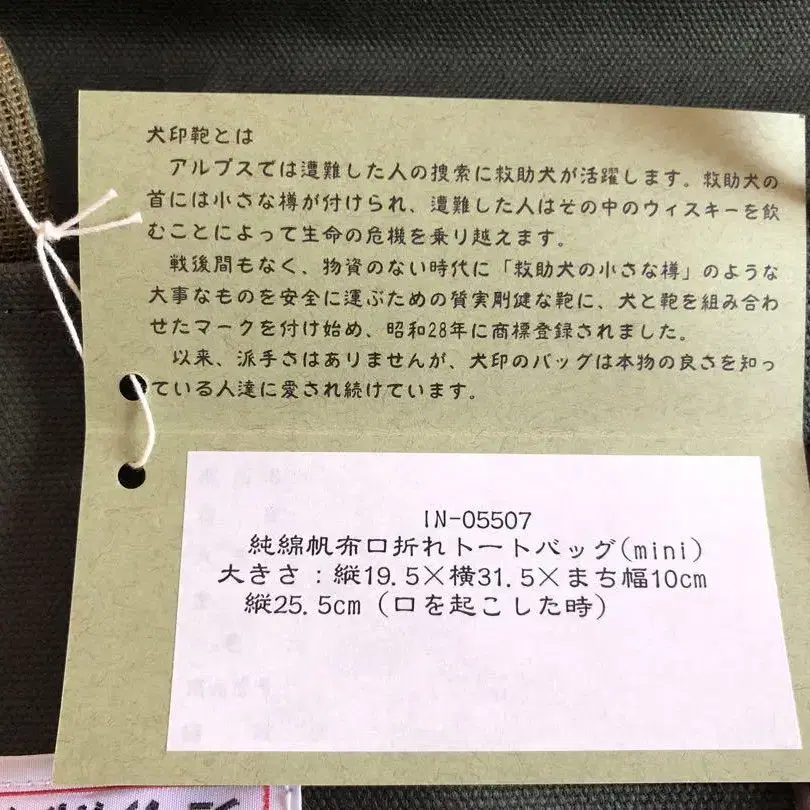 犬印鞄とは
アルプスでは遭難した人の捜索に救助犬が活躍します。救助犬の
首には小さな樽が付けられ、遭難した人はその中のウィスキーを飲
むことによって生命の危機を乗り越えます。
戦後間もなく、物資のない時代に「救助犬の小さな樽」のような
大事なものを安全に運ぶための質実剛健な鞄に、犬と鞄を組み合わ
せたマークを付け始め、昭和28年に商標登録されました。
以来、派手さはありませんが、犬印のバッグは本物の良さを知っ
ている人達に愛され続けています。
IN-05507
純綿帆布口折れトートバッグ(mini)
大きさ：縦19.5×横31.5×まち幅10cm
縦25.5cm（口を起こした時）